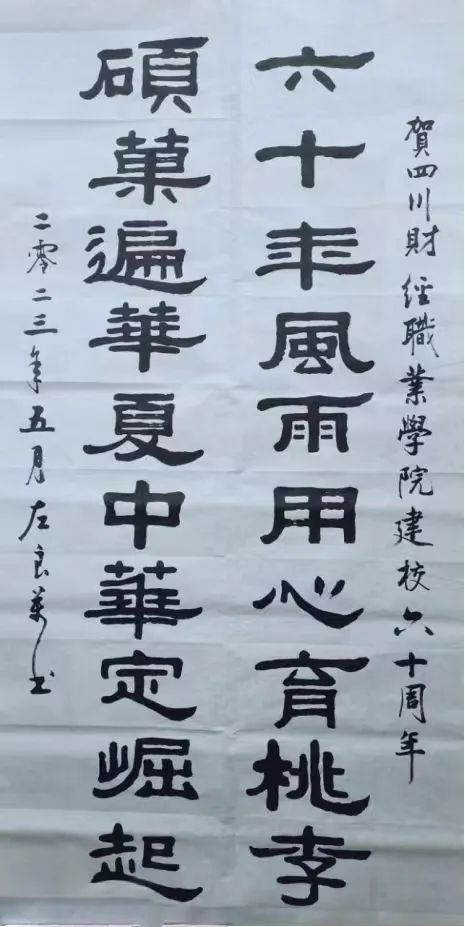 賀四川財經職業學院建校六十周年
六十年風雨用心育桃李
碩菓遍華夏中華定崛起
二零二三年五月左良萬书